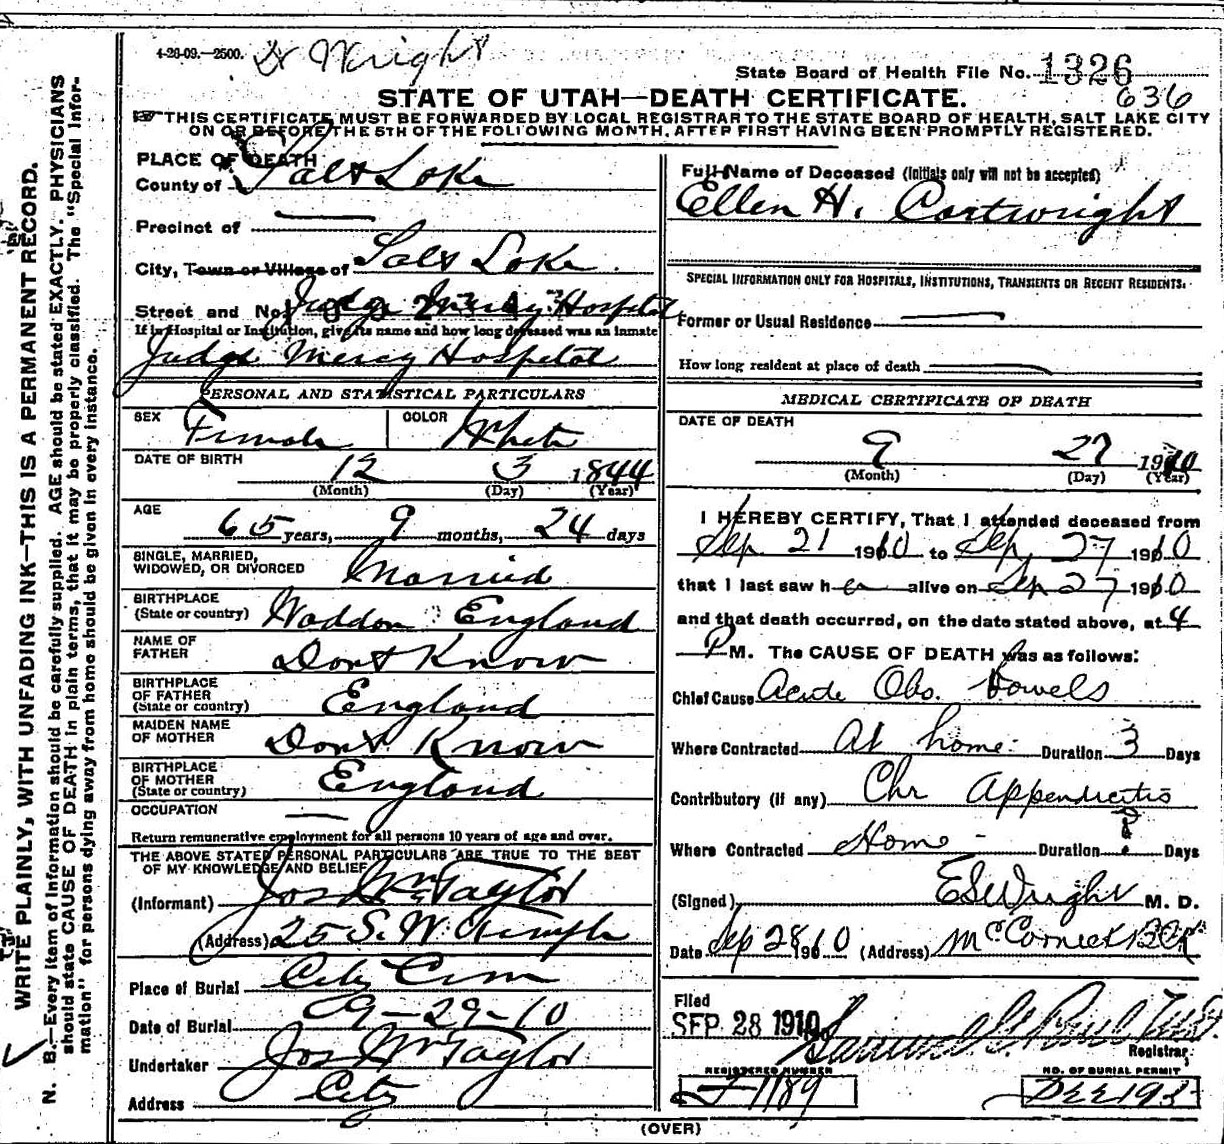 4-26-09.—2500. Dr Wright
State Board of Health File No. 1326
636
STATE OF UTAH—DEATH CERTIFICATE.
THIS CERTIFICATE MUST BE FORWARDED BY LOCAL REGISTRAR TO THE STATE BOARD OF HEALTH, SALT LAKE CITY
ON OR BEFORE THE 5TH OF THE FOLLOWING MONTH, AFTER FIRST HAVING BEEN PROMPTLY REGISTERED.
WRITE PLAINLY, WITH UNFADING INK—THIS IS A PERMANENT RECORD.
N. B.—Every item of information should be carefully supplied. AGE should be stated EXACTLY. PHYSICIANS
should state CAUSE OF DEATH in plain terms, that it may be properly classified. The "Special Infor-
mation" for persons dying away from home should be given in every instance.
PLACE OF DEATH
County of Salt Lake
Precinct of
City, Town or Village of Salt Lake.
Street and No. Judge Mercy Hospital
If in Hospital or Institution, give its name and how long deceased was an inmate
Judge Mercy Hospital
PERSONAL AND STATISTICAL PARTICULARS
SEX Female COLOR White
DATE OF BIRTH 12 3 1844
(Month) (Day) (Year)
AGE 65 years, 9 months, 24 days
SINGLE, MARRIED,
WIDOWED, OR DIVORCED Married
BIRTHPLACE
(State or country) Haddon England
NAME OF
FATHER Dont Know
BIRTHPLACE
OF FATHER
(State or country) England
MAIDEN NAME
OF MOTHER Dont Know
BIRTHPLACE
OF MOTHER
(State or country) England
OCCUPATION
Return remunerative employment for all persons 10 years of age and over.
THE ABOVE STATED PERSONAL PARTICULARS ARE TRUE TO THE BEST
OF MY KNOWLEDGE AND BELIEF
(Informant) Jos Wm Taylor
(Address) 25 S. W. Temple
Place of Burial City Cem
Date of Burial 9-29-10
Undertaker Jos Wm Taylor
Address City
Full Name of Deceased (Initials only will not be accepted)
Ellen H. Cartwright
SPECIAL INFORMATION ONLY FOR HOSPITALS, INSTITUTIONS, TRANSIENTS OR RECENT RESIDENTS.
Former or Usual Residence
How long resident at place of death
MEDICAL CERTIFICATE OF DEATH
DATE OF DEATH
9 27 1910
(Month) (Day) (Year)
I HEREBY CERTIFY, That I attended deceased from
Sep 21 1910 to Sep 27 1910
that I last saw her alive on Sep 27 1910
and that death occurred, on the date stated above, at 4
P M. The CAUSE OF DEATH was as follows:
Chief Cause Acute Obs. bowels
Where Contracted At home Duration 3 Days
Contributory (if any) Chr Appendicitis
Where Contracted Home Duration ? Days
(Signed) E S Wright M. D.
Date Sep 28 1910 (Address) McCornick Blk
Filed
SEP 28 1910
Registrar
REGISTERED NUMBER NO. OF BURIAL PERMIT
1189
(OVER)